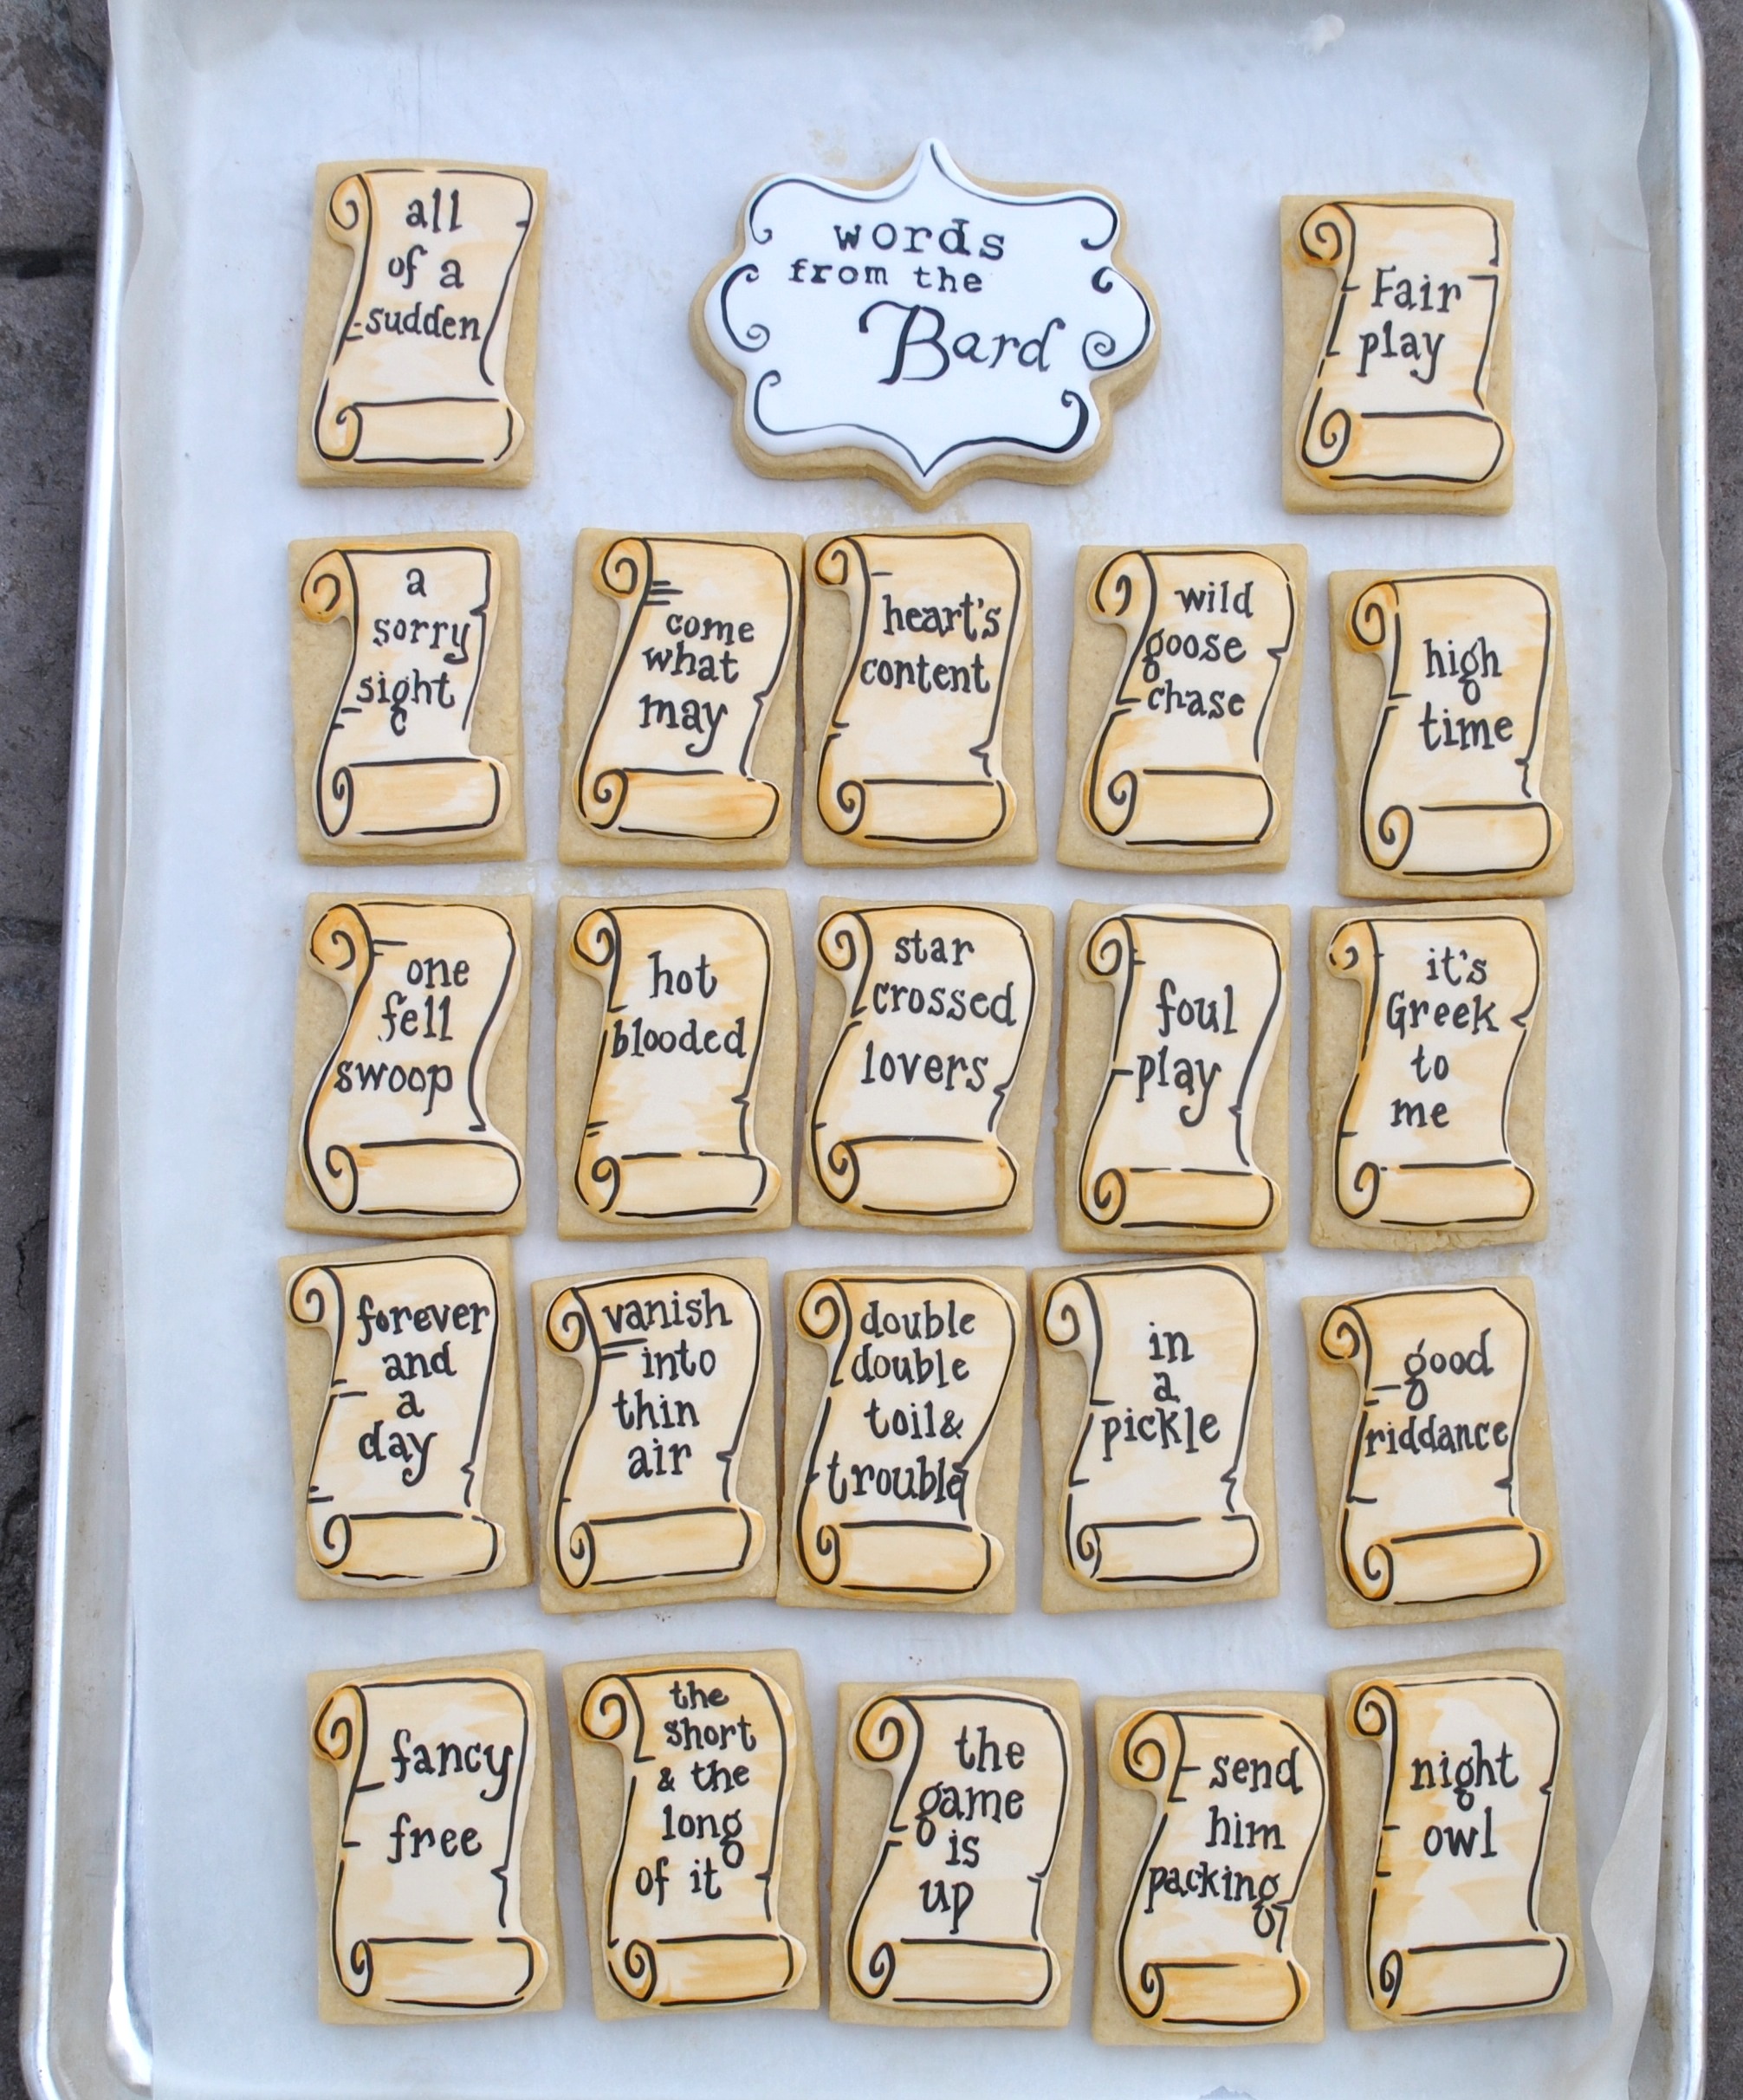 all
of a
sudden
words
from the
Bard
Fair
play
a
sorry
sight
come
what
may
heart's
content
wild
goose
chase
high
time
one
fell
swoop
hot
blooded
star
crossed
lovers
foul
play
it's
Greek
to
me
forever
and
a
day
vanish
into
thin
air
double
double
toil&
trouble
in
a
pickle
good
riddance
fancy
free
the
short
& the
long
of it
the
game
is
up
send
him
packing
night
owl